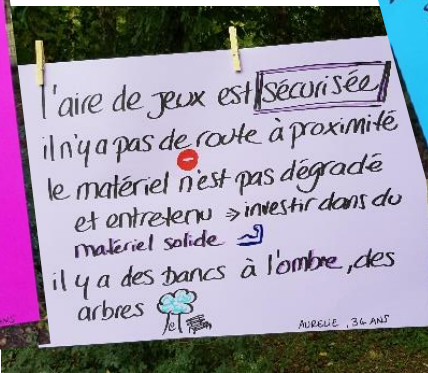 l'aire de jeux est sécurisée
il n'y a pas de route à proximité
le matériel n'est pas dégradé
et entretenu → investir dans du
matériel solide
il y a des bancs à l'ombre, des
arbres
AURELIE, 36 ANS
ANS